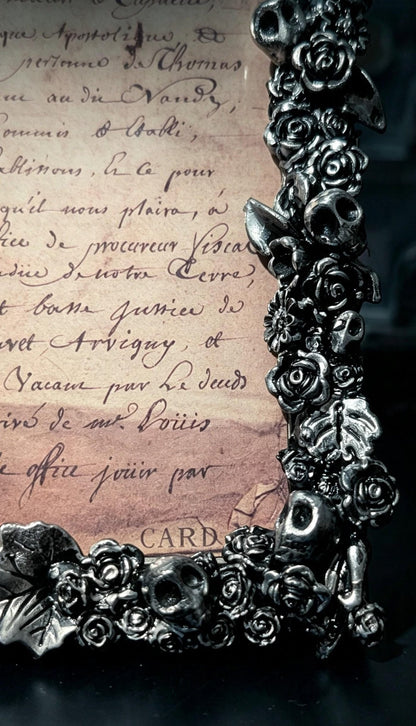 que Apostolique, &
personne de Thomas
au die Vandy,
Commis & Etabli,
Etablissons, Et Ce pour
qu'il nous plaira, à
office de procureur fiscal
de notre Terre,
t basse Justice de
Arvigny, et
Vacant par Le deceds
de mre. Loüis
office joüir par
CARD